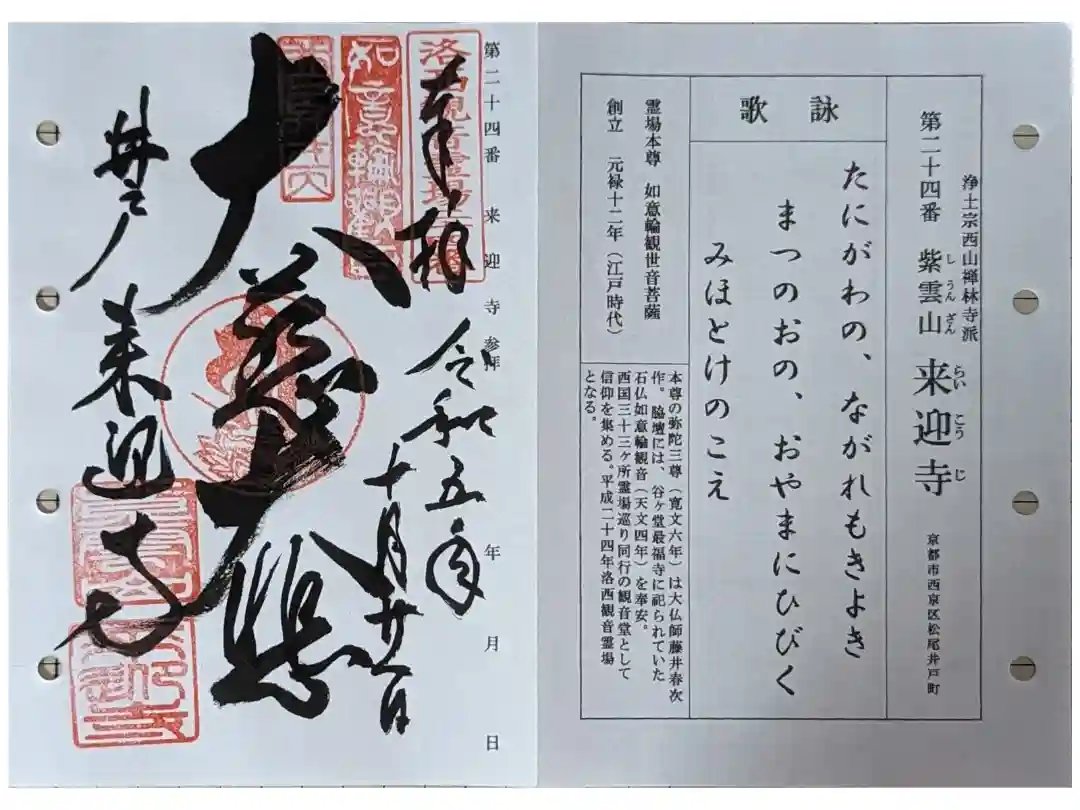 浄土宗西山禅林寺派
第二十四番 紫雲山 来迎寺
しうんざん らいこうじ
京都市西京区松尾井戸町
詠歌
たにがわの、ながれもきよき
まつのおの、おやまにひびく
みほとけのこえ
霊場本尊 如意輪観世音菩薩
創立 元禄十二年（江戸時代）
本尊の弥陀三尊（寛文六年）は大仏師藤井春次
作。脇壇には、谷ヶ堂最福寺に祀られていた
石仏如意輪観音（天文四年）を奉安。
西国三十三ヶ所霊場巡り同行の観音堂として
信仰を集める。平成二十四年洛西観音霊場
となる。
第二十四番 来迎寺 参拝 年 月 日
奉拝
令和五年
十月廿一日
如意輪観
大慈
井戸 来迎寺